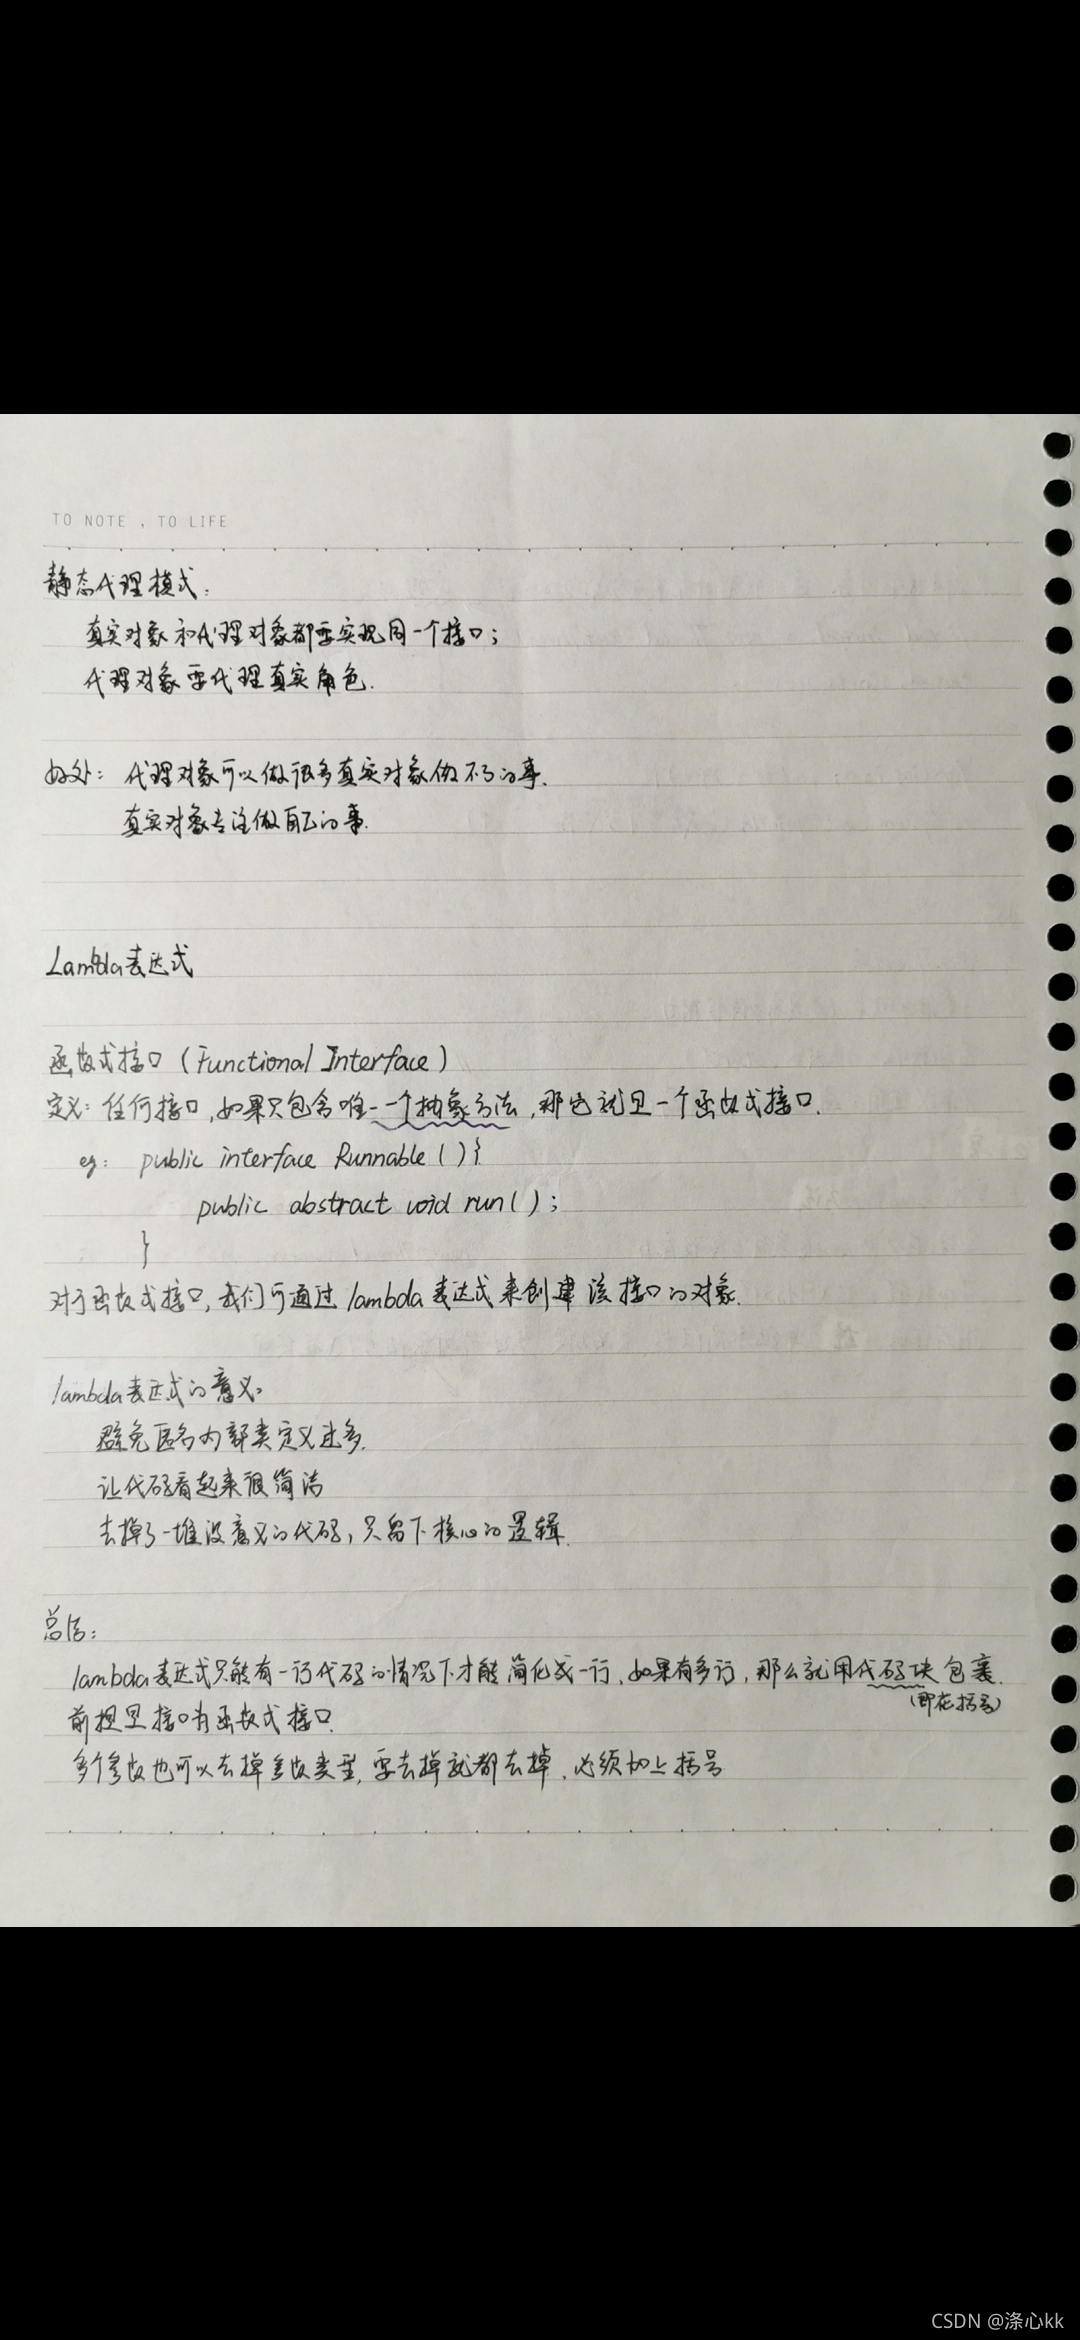 TO NOTE , TO LIFE
静态代理模式:
真实对象和代理对象都要实现同一个接口;
代理对象要代理真实角色.
好处: 代理对象可以做很多真实对象做不了的事.
真实对象专注做自己的事.
Lambda表达式
函数式接口 (Functional Interface)
定义: 任何接口,如果只包含唯一一个抽象方法,那它就是一个函数式接口.
eg: public interface Runnable(){
public abstract void run();
}
对于函数式接口,我们可通过lambda表达式来创建该接口的对象.
lambda表达式的意义:
避免匿名内部类定义过多.
让代码看起来很简洁
去掉了一堆没意义的代码,只留下核心的逻辑.
总结:
lambda表达式只能有一行代码的情况下才能简化成一行,如果有多行,那么就用代码块包裹.
(即花括号)
前提是接口为函数式接口.
多个参数也可以去掉参数类型,要去掉就都去掉,必须加上括号
CSDN @涤心kk